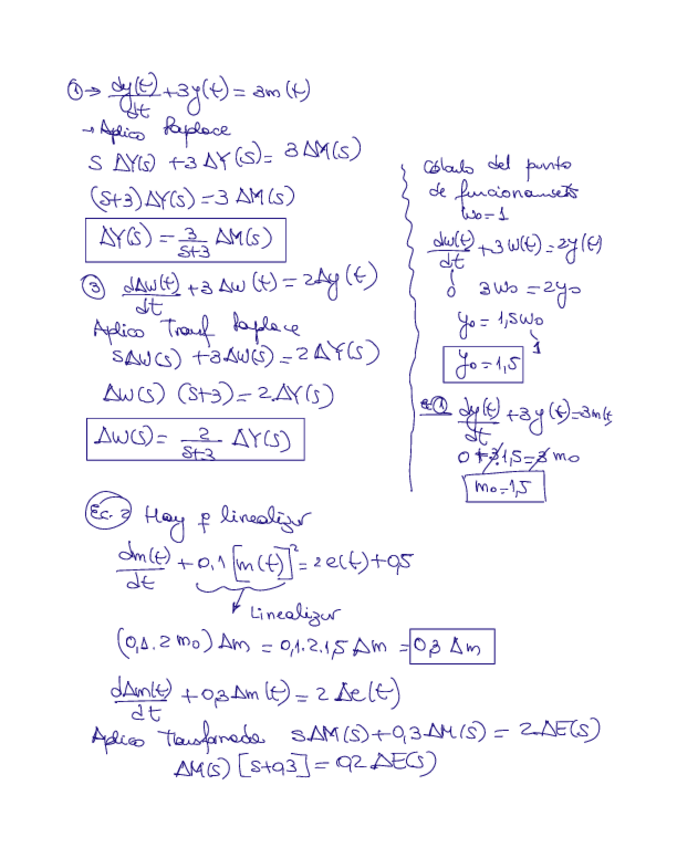 ① → dy(t)/dt + 3y(t) = 3m(t)
→ Aplico Laplace
S ΔY(s) + 3 ΔY(s) = 3 ΔM(s)
(S+3) ΔY(s) = 3 ΔM(s)
ΔY(s) = 3/(S+3) ΔM(s)
③ dΔw(t)/dt + 3 Δw(t) = 2Δy(t)
Aplico Transf Laplace
SΔW(s) + 3ΔW(s) = 2ΔY(s)
ΔW(s) (S+3) = 2ΔY(s)
ΔW(s) = 2/(S+3) ΔY(s)
Cálculo del punto
de funcionamiento
wo = 1
dw(t)/dt + 3w(t) = 2y(t)
0 3wo = 2yo
yo = 1,5wo
1
yo = 1,5
① dy(t)/dt + 3y(t) = 3m(t)
0 + 3.1,5 = 3 mo
mo = 1,5
Ec. 2 Hay q linealizar
dm(t)/dt + 0,1 [m(t)]² = 2e(t) + 0,5
Linealizar
(0,1.2 mo) Δm = 0,1.2.1,5 Δm = 0,3 Δm
dΔm(t)/dt + 0,3 Δm(t) = 2 Δe(t)
Aplico Transformada SΔM(s) + 0,3 ΔM(s) = 2ΔE(s)
ΔM(s) [S+0,3] = 0,2 ΔE(s)